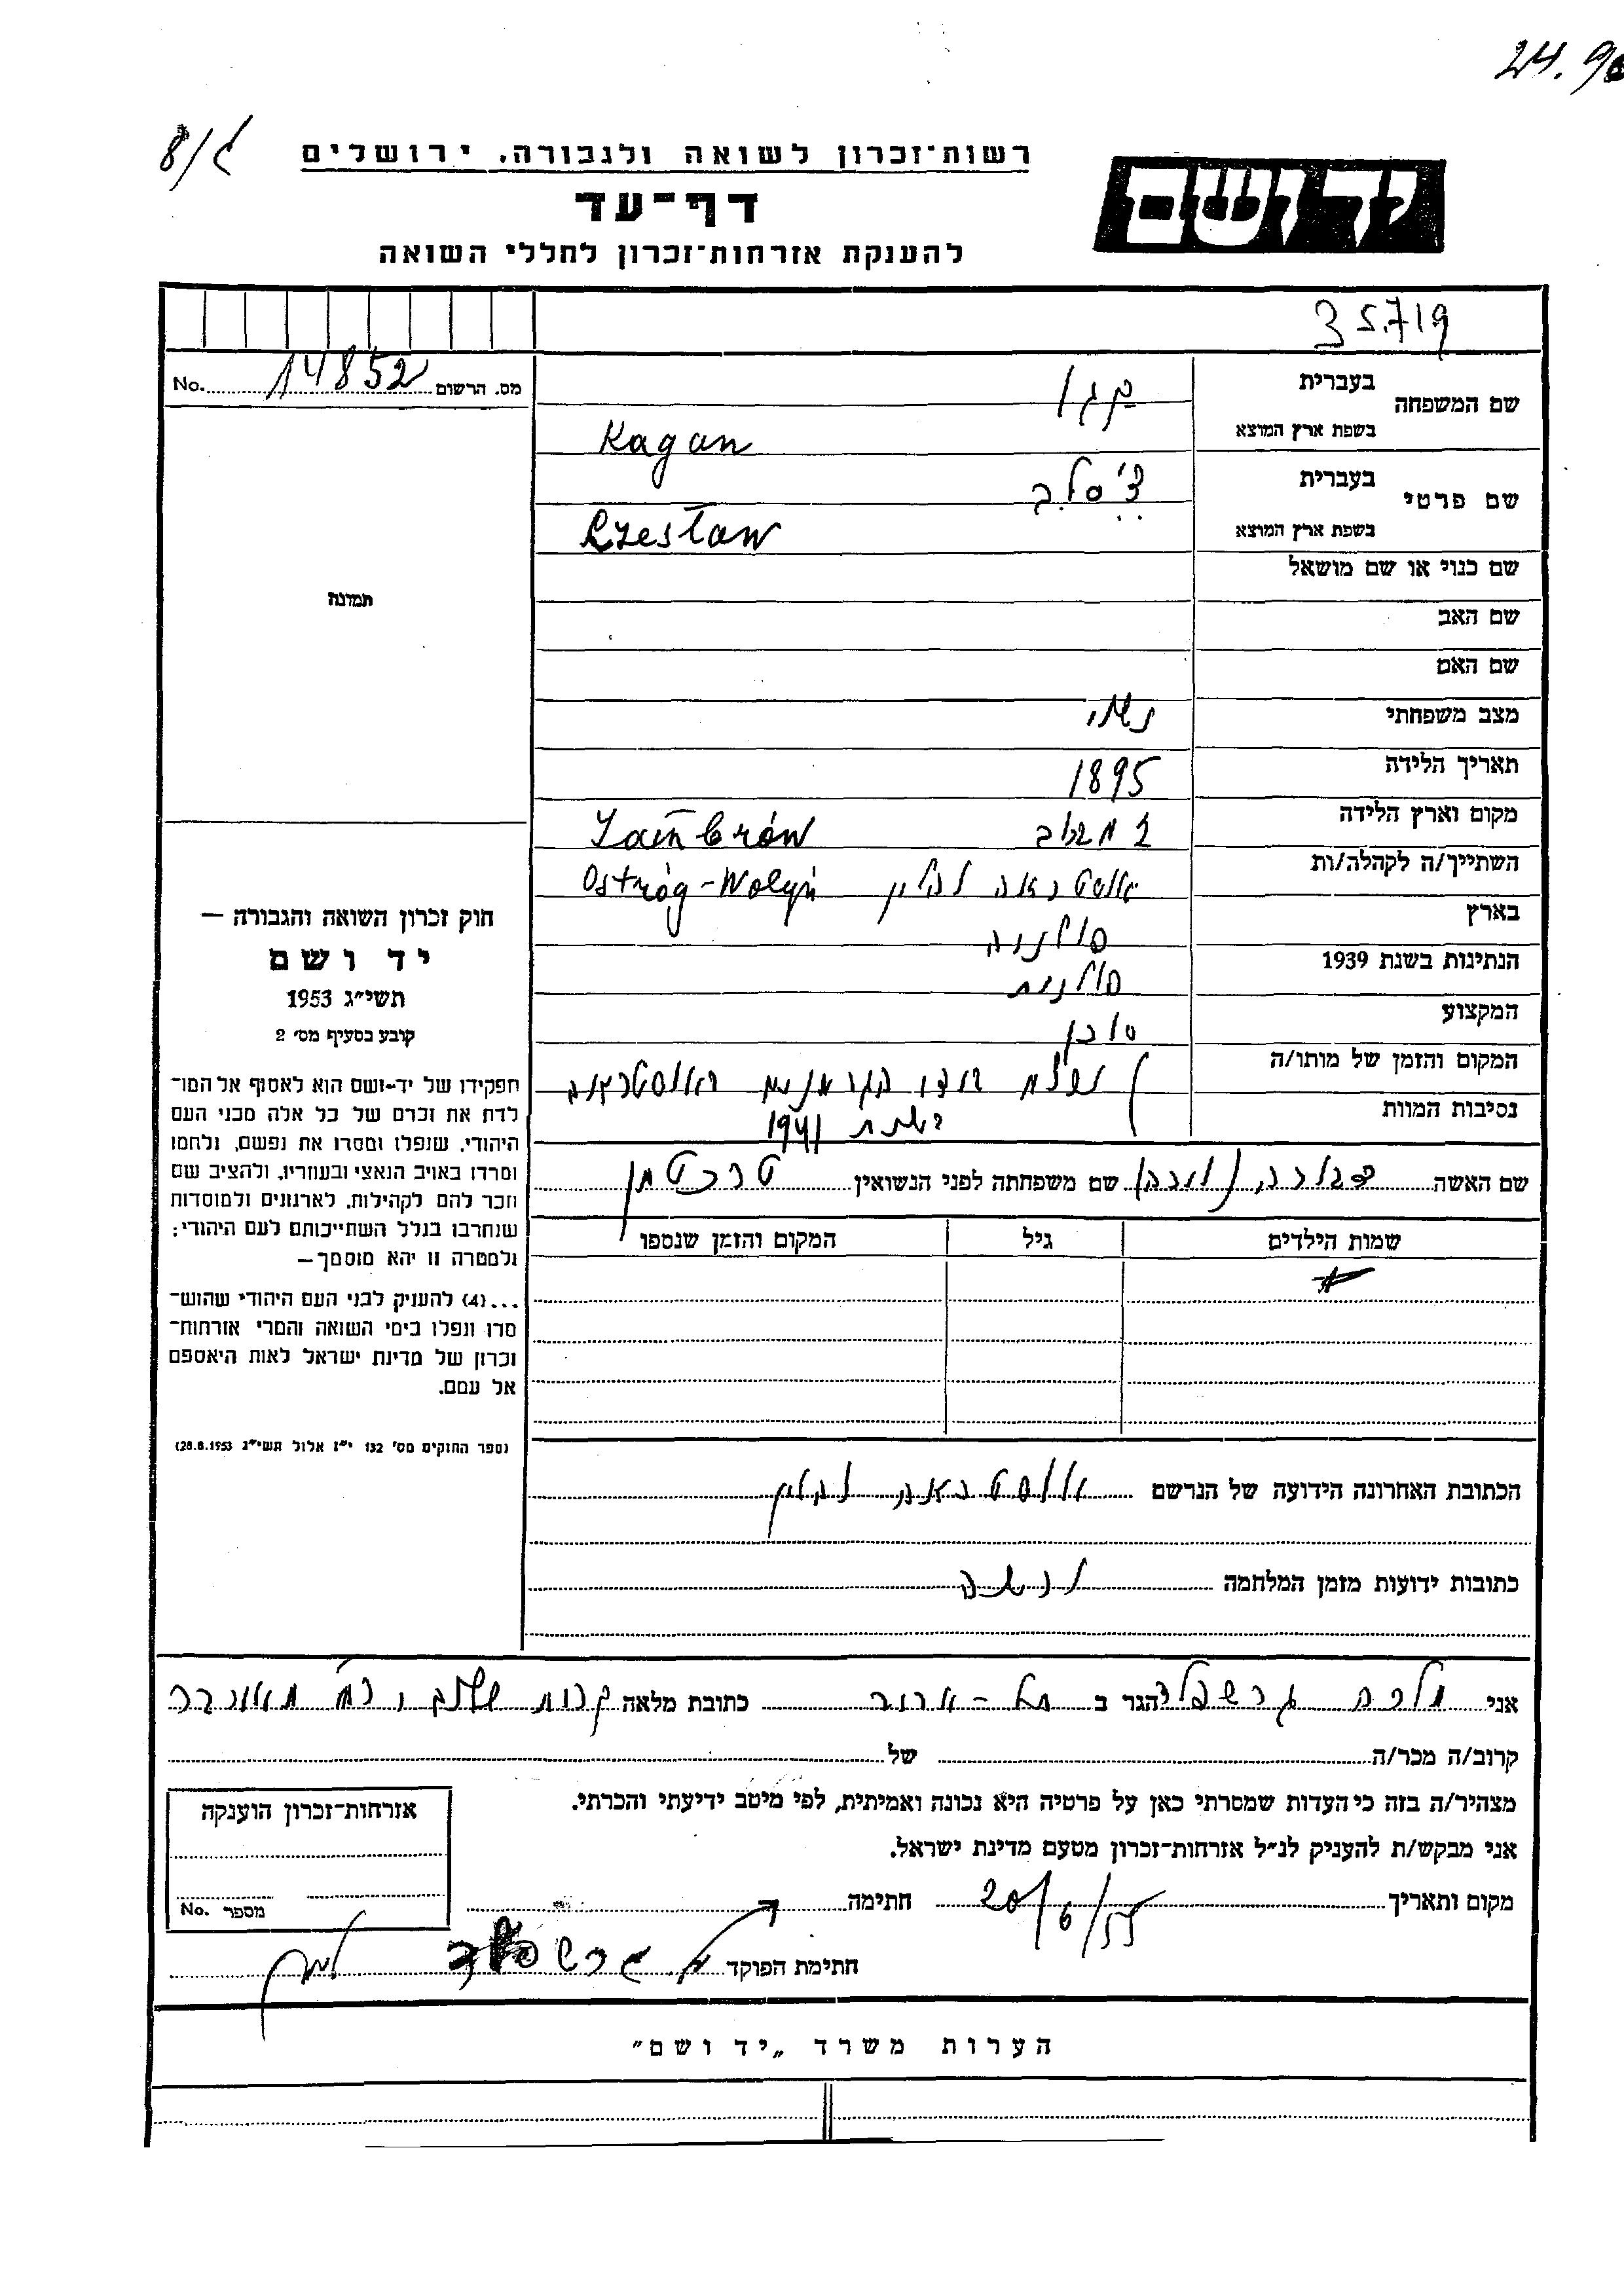 24.9
8/ג
רשות־זכרון לשואה ולגבורה, ירושלים
יד ושם
דף־עד
להענקת אזרחות־זכרון לחללי השואה
35719
No. 14852 מס. הרשום
שם המשפחה
בעברית קגן
בשפת ארץ המוצא Kagan
שם פרטי
בעברית צ'סלב
בשפת ארץ המוצא Czesław
שם כנוי או שם מושאל
שם האב
שם האם
מצב משפחתי נשוי
תאריך הלידה 1895
מקום וארץ הלידה זמברוב Zambrów
השתייך/ה לקהלה/ות אוסטראה ווהלין Ostróg-Wołyń
בארץ פולניה
הנתינות בשנת 1939 פולנית
המקצוע סוכן
המקום והזמן של מותו/ה
נסיבות המוות
נרצח בידי הגרמנים באוסטראה
בשנת 1941
שם האשה שם משפחתה לפני הנשואין
שמות הילדים גיל המקום והזמן שנספו
הכתובת האחרונה הידועה של הנרשם אוסטראה ווהלין
כתובות ידועות מזמן המלחמה
תמונה
חוק זכרון השואה והגבורה —
יד ושם
תשי״ג 1953
קובע בסעיף מס׳ 2
תפקידו של יד־ושם הוא לאסוף אל המו־
לדת את זכרם של כל אלה מבני העם
היהודי, שנפלו ומסרו את נפשם, נלחמו
ומרדו באויב הנאצי ובעוזריו, ולהציב שם
וזכר להם לקהילות, לארגונים ולמוסדות
שנחרבו בגלל השתייכותם לעם היהודי;
ולמטרה זו יהא מוסמך—
...(4) להעניק לבני העם היהודי שהוש־
מדו ונפלו בימי השואה והמרי אזרחות־
זכרון של מדינת ישראל לאות היאספם
אל עמם.
(ספר החוקים מס׳ 132 י״ז אלול תשי״ג 28.8.1953)
אני מלכה גרשפלד הגר ב תל-אביב כתובת מלאה קרית שלום
קרוב/ה מכר/ה של
מצהיר/ה בזה כי העדות שמסרתי כאן על פרטיה היא נכונה ואמיתית, לפי מיטב ידיעתי והכרתי.
אני מבקש/ת להעניק לנ״ל אזרחות־זכרון מטעם מדינת ישראל.
מקום ותאריך 20/6/55 חתימה
חתימת הפוקד מ. גרשפלד
אזרחות־זכרון הוענקה
מספר No.
הערות משרד „יד ושם״